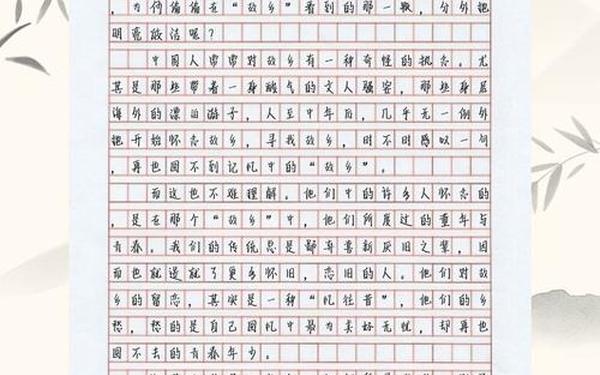 ，为何偏偏在“故乡”看到的那一瞬，分外把
明亮皎洁呢？
中国人常常对故乡有一种奇怪的执念。尤
其是那些带着一身酸气的文人骚客，那些身居
海外的漂泊游子，人至中年后，几乎无一例外
地开始怀念故乡，寻找故乡，时不时感叹一句
，再也回不到记忆中的“故乡”。
而这也不难理解。他们中的许多人怀念的
，是在那个“故乡”中，他们所度过的童年与
青春。我们的传统总是鄙弃喜新厌旧之辈，因
而也就造就了更多怀旧，恋旧的人。他们对故
乡的留恋，其实是一种“忆往昔”，他们的乡
愁，愁的是自己回忆中最为美好无忧，却再也
回不去的青春年少。